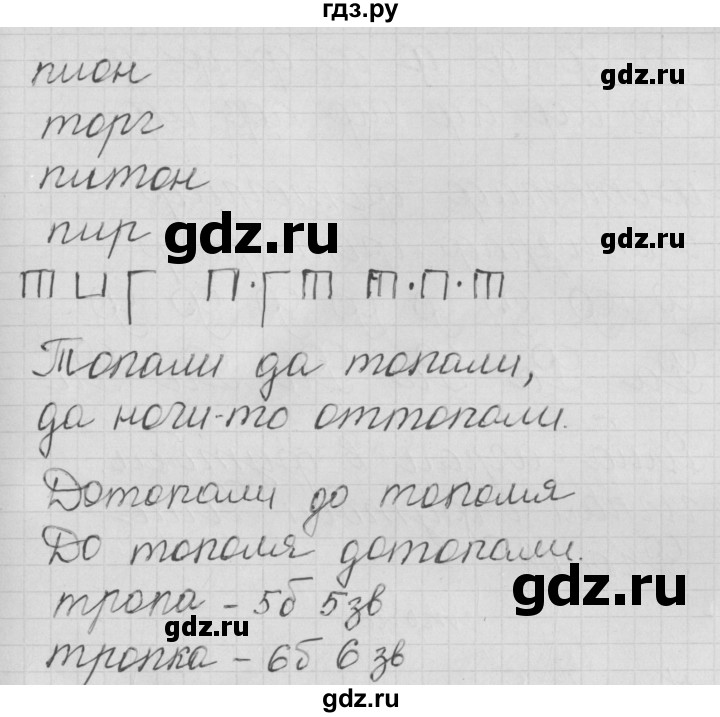 гдз.ру
пион
gdz.ru
торг
питон
пир
gdz.ru
gdz.ru
т и г п·гт т·п·т
Топали да топали,
да ноги-то оттопали.
Дотопали до тополя
До тополя дотопали.
gdz.ru
тропа - 5б 5зв
gdz.ru
тропка - 6б 6 зв
gdz.ru